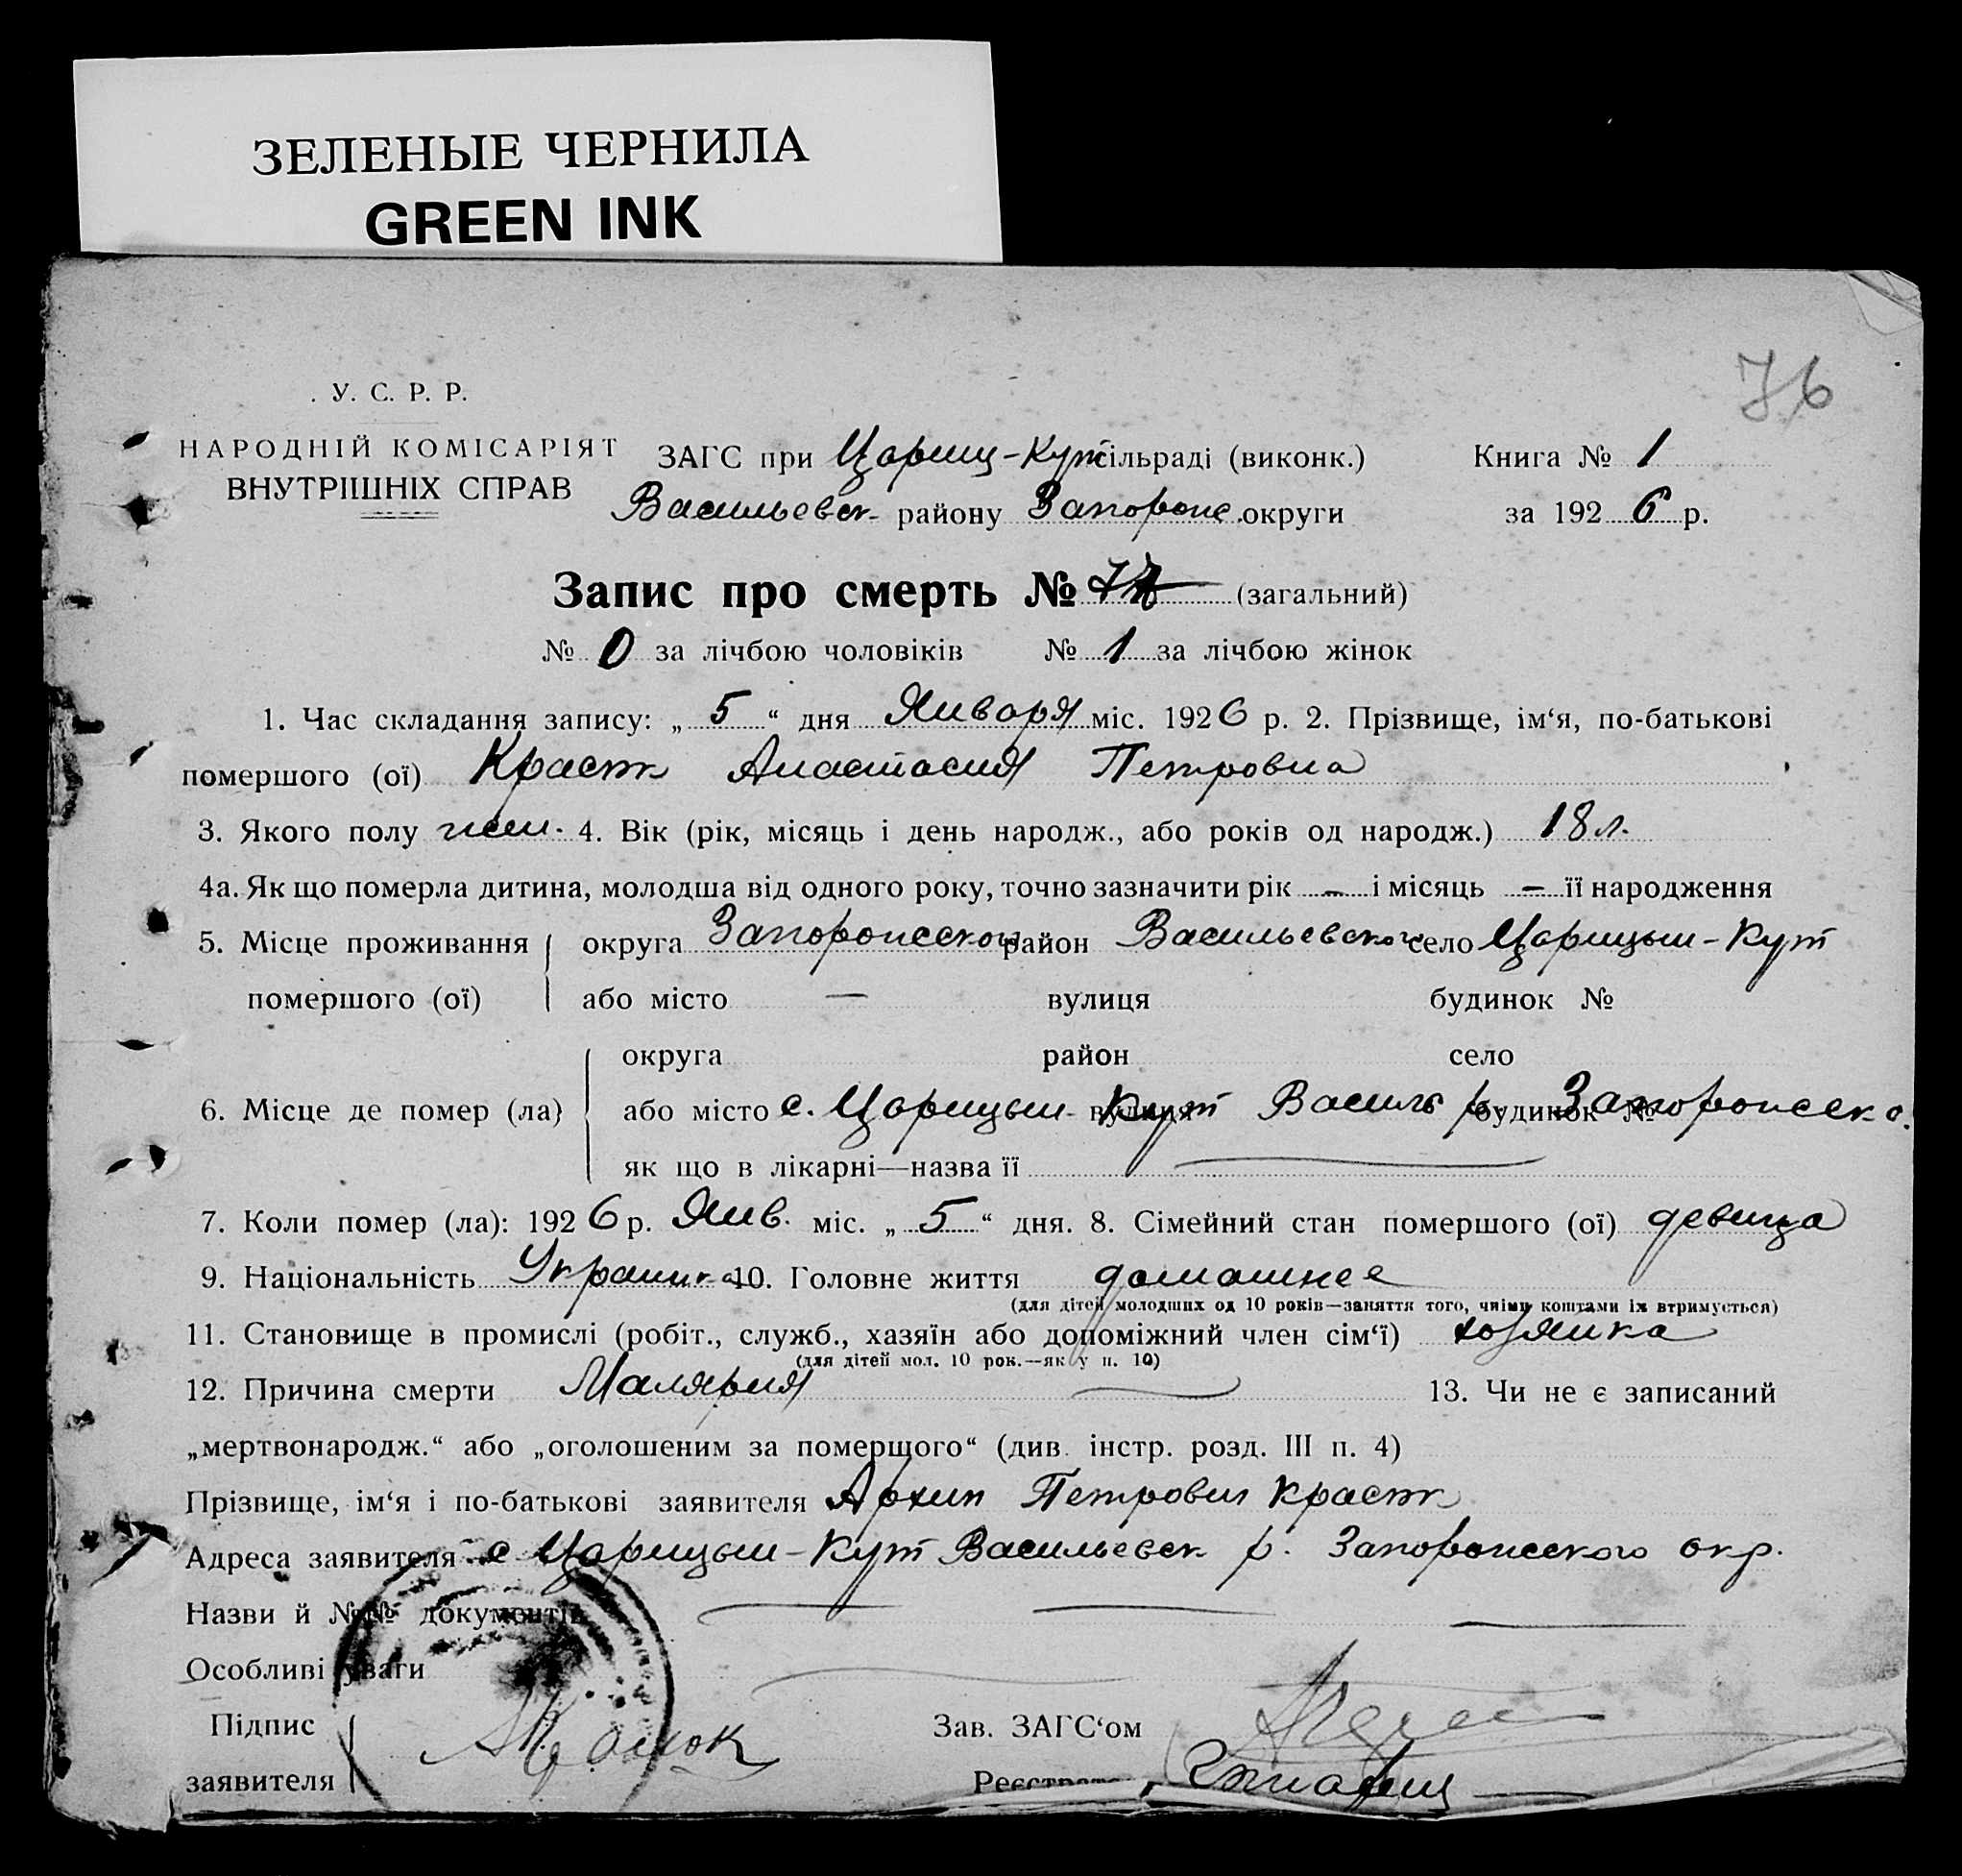 ЗЕЛЕНЫЕ ЧЕРНИЛА
GREEN INK
76
У. С. Р. Р.
НАРОДНІЙ КОМІСАРІЯТ
ВНУТРІШНІХ СПРАВ
ЗАГС при Цариц-Кут сільраді (виконк.) Книга № 1
Васильевск. району Запорож. округи за 1926 р.
Запис про смерть № (загальний)
№ 0 за лічбою чоловіків № 1 за лічбою жінок
1. Час складання запису: „5“ дня Января міс. 1926 р. 2. Прізвище, ім‘я, по-батькові
помершого (ої) Анастасия Петровна
3. Якого полу жен. 4. Вік (рік, місяць і день народж., або років од народж.) 18 л.
4а. Як що померла дитина, молодша від одного року, точно зазначити рік – і місяць – її народження
5. Місце проживання помершого (ої) округа Запорожского район Васильевского село Царицын-Кут
або місто — вулиця будинок №
округа район село
6. Місце де помер (ла) або місто с. Царицын вулиця Кут Василь р. будинок № Запорожско.
як що в лікарні—назва її —
7. Коли помер (ла): 1926 р. Янв. міс. „5“ дня. 8. Сімейний стан помершого (ої) девица
9. Національність Украинка 10. Головне життя домашнее
(для дітей молодших од 10 років—заняття того, чиїми коштами їх втримується)
11. Становище в промислі (робіт., служб., хазяїн або допоміжний член сім‘ї) хозяика
(для дітей мол. 10 рок.—як у п. 10)
12. Причина смерти Малярия — 13. Чи не є записаний
„мертвонародж.“ або „оголошеним за помершого“ (див. інстр. розд. III п. 4)
Прізвище, ім‘я і по-батькові заявителя Архип Петрович
Адреса заявителя с Царицын-Кут Васильевск р. Запорожского окр.
Назви й №№ документів — — —
Особливі уваги
Підпис заявителя
Зав. ЗАГС‘ом